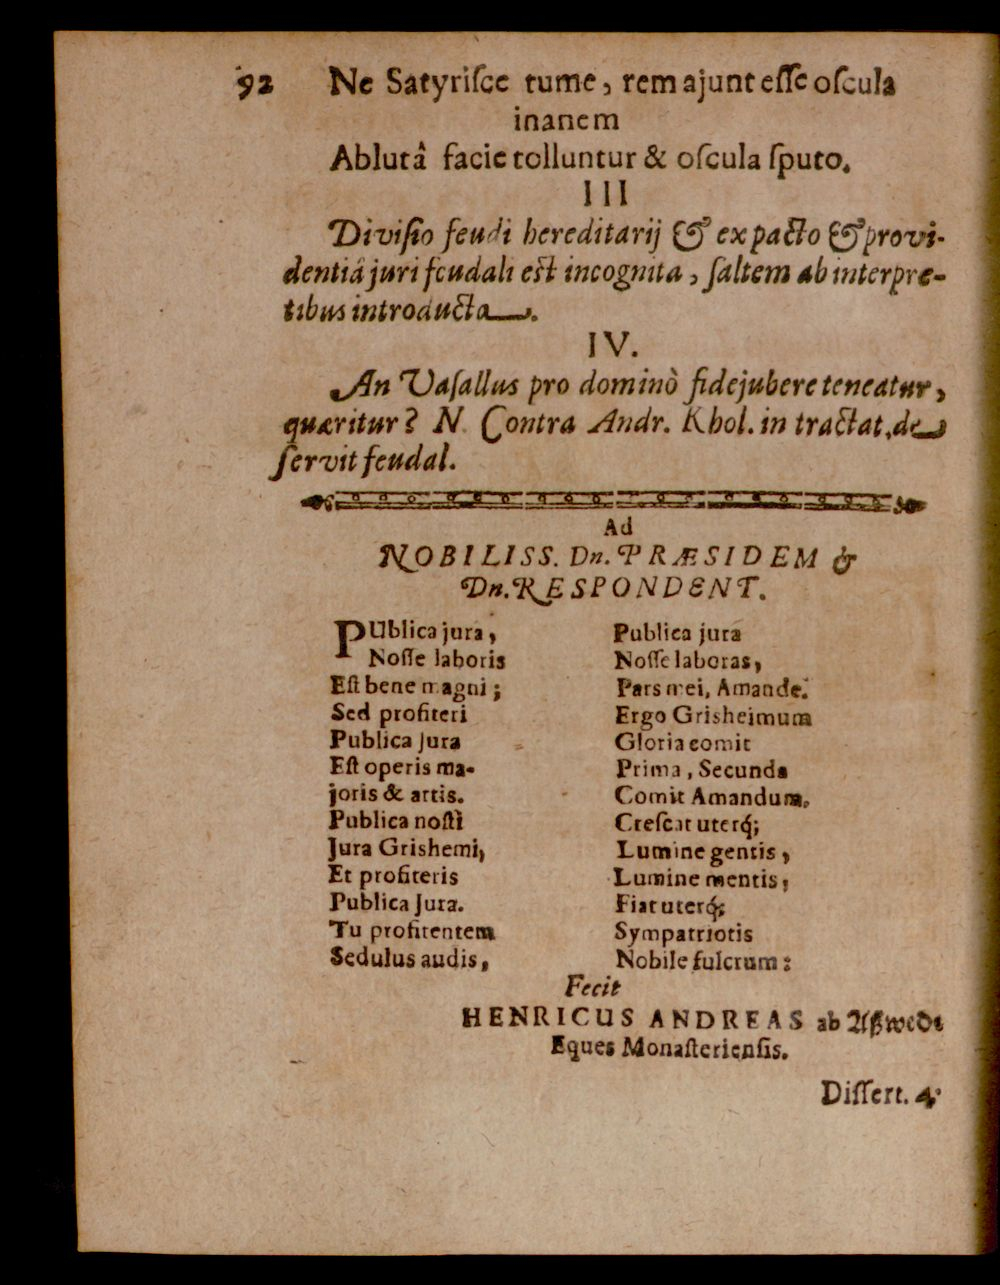 92 Ne Satyriſce tume, rem ajunt eſſe oſcula
inanem
Ablutâ facie tolluntur & oſcula ſputo.
III
Diviſio feudi hereditarij & ex pacto & provi-
dentiâ juri feudali eſt incognita, ſaltem ab interpre-
tibus introducta.
IV.
An Vaſallus pro dominò fidejubere teneatur,
quæritur? N. Contra Andr. Khol. in tractat. de
ſervit feudal.
Ad
NOBILISS. Dn. PRÆSIDEM &
Dn. RESPONDENT.
PUblica jura,
Noſſe laboris
Eſt bene magni;
Sed profiteri
Publica Jura
Eſt operis ma-
joris & artis.
Publica noſtì
Jura Grishemi,
Et profiteris
Publica Jura.
Tu profitentem
Sedulus audis,
Publica jura
Noſſe laboras,
Pars mei, Amande.
Ergo Grisheimum
Gloria comit
Prima, Secunda
Comit Amandum,
Creſcat uterq́;
Lumine gentis,
Lumine mentis,
Fiat uterq́;
Sympatriotis
Nobile fulcrum:
Fecit
HENRICUS ANDREAS ab Aſßwede
Eques Monaſterienſis.
Diſſert. 4.